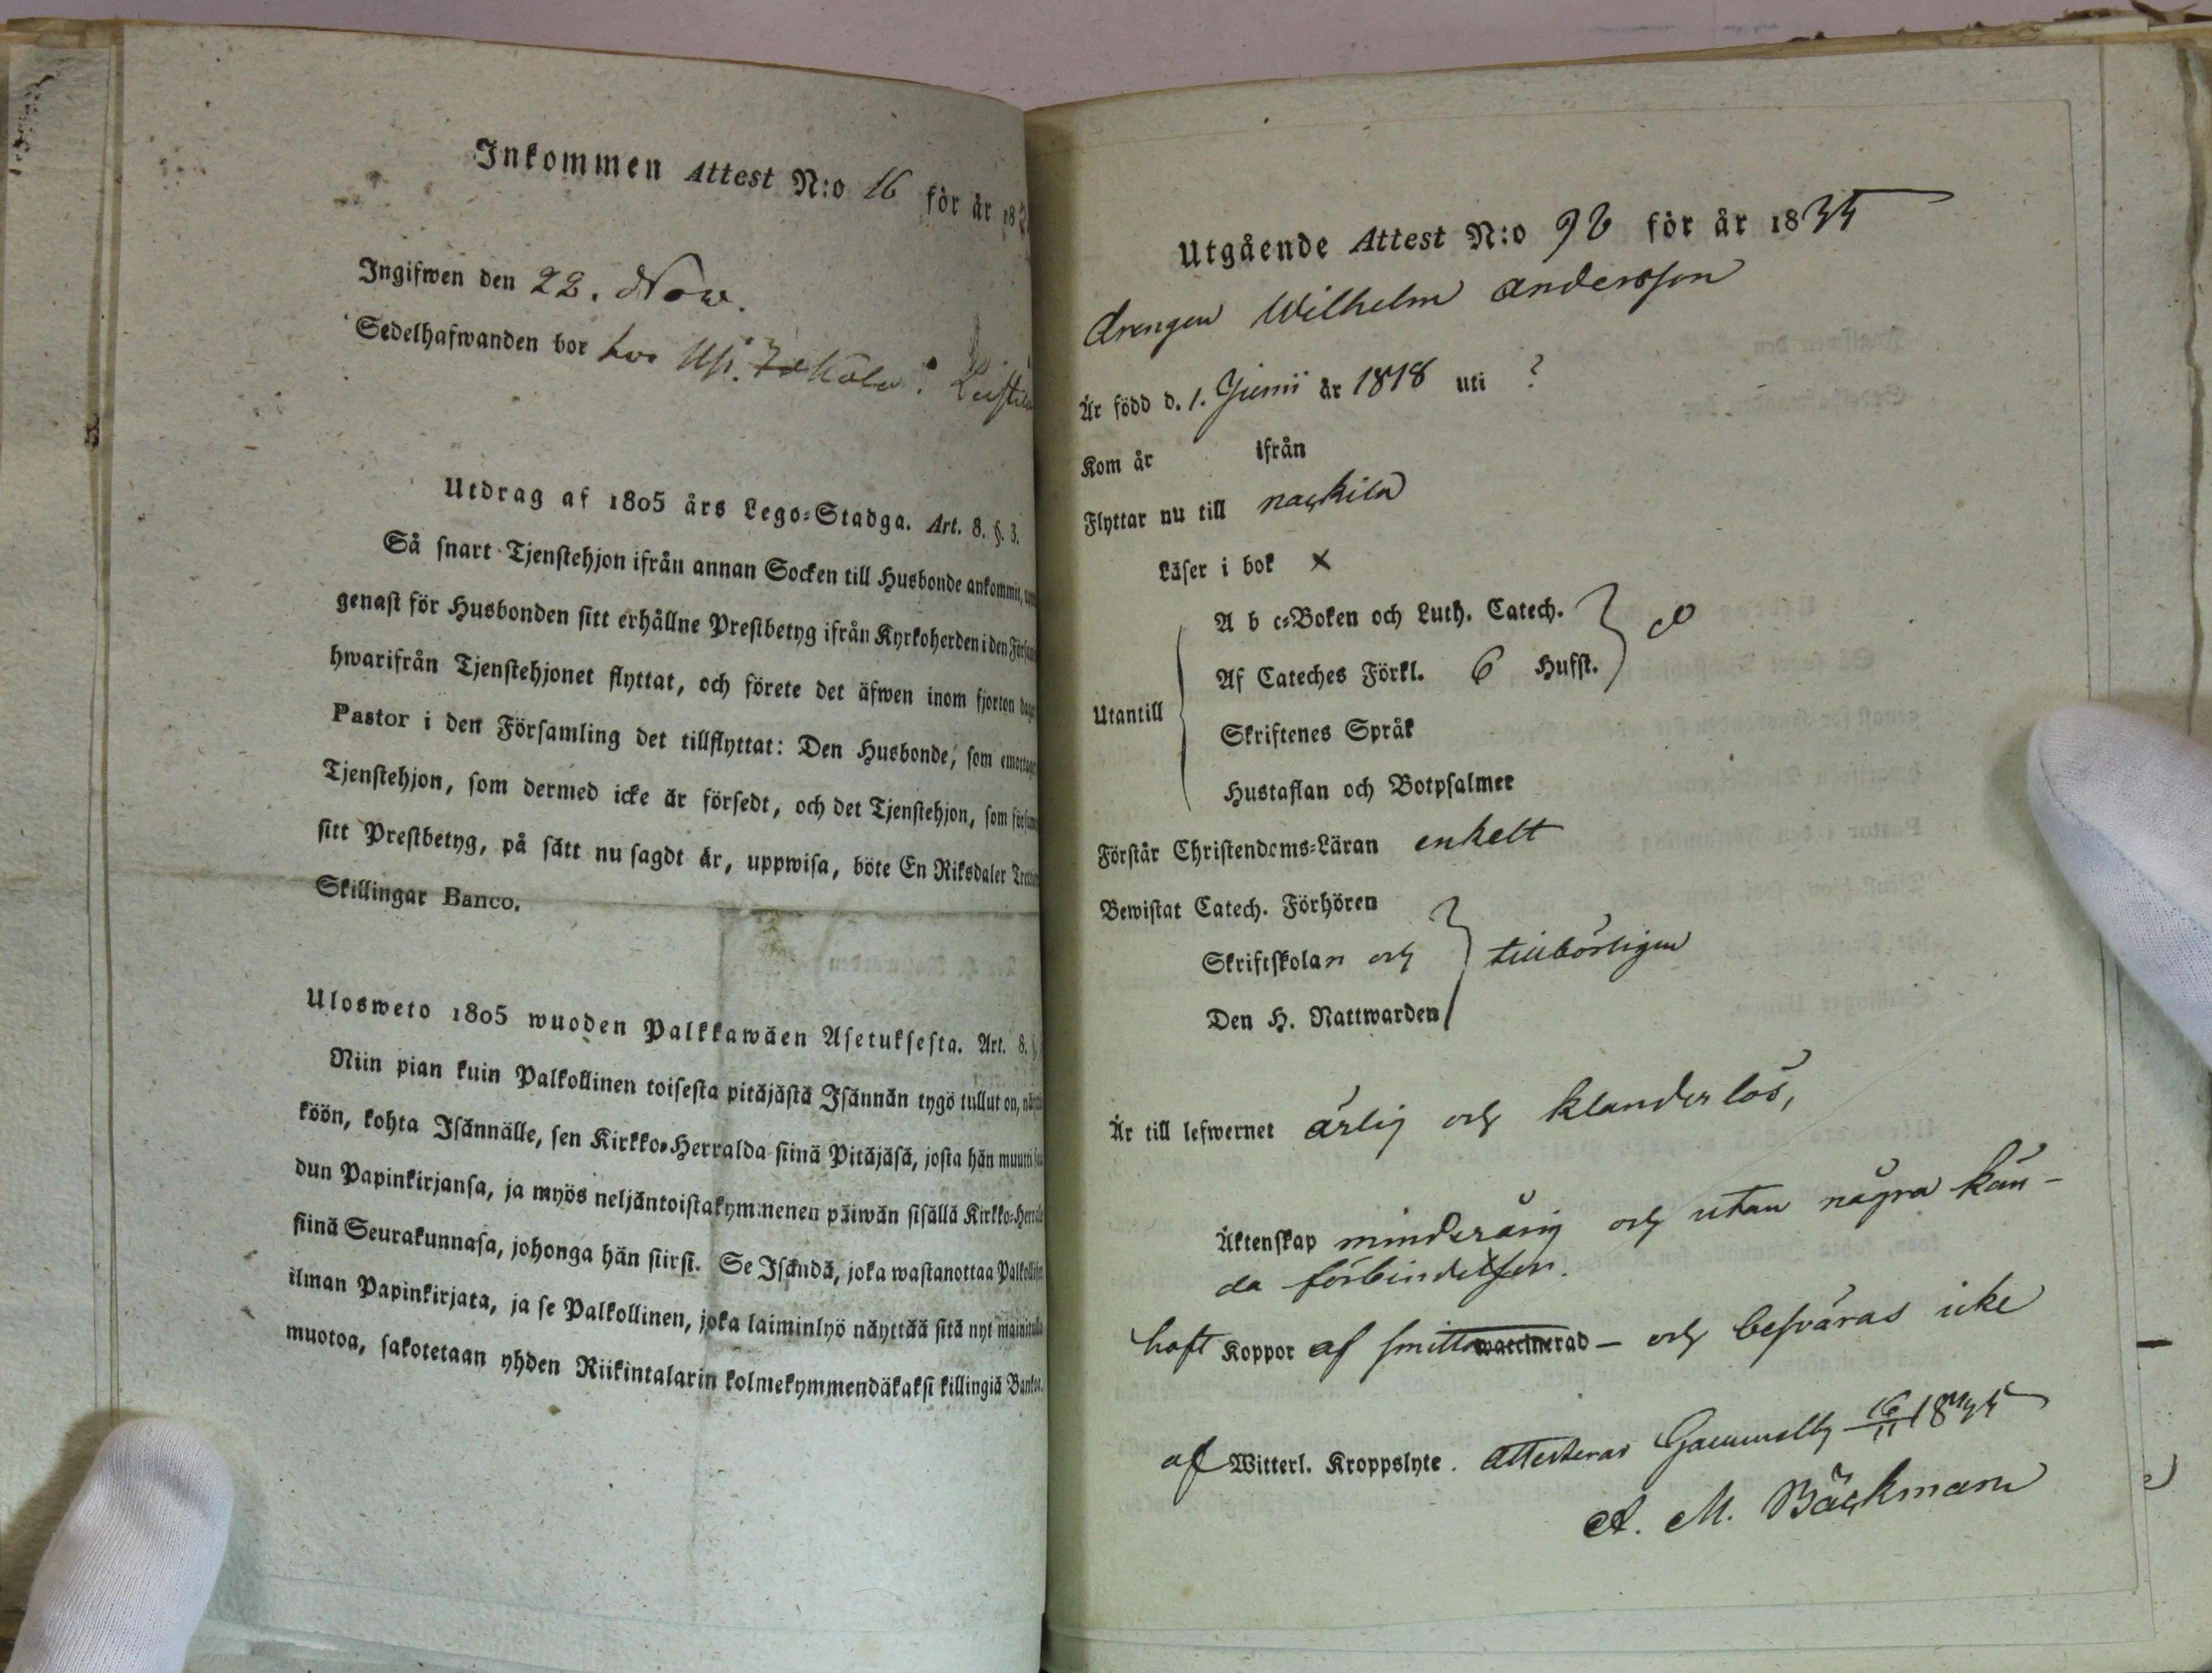 Inkommen Attest N:o 16 för år 18
Ingifwen den 22. Now.
Sedelhafwanden bor hos
Utdrag af 1805 års Lego-Stadga. Art. 8. §. 3.
Så snart Tjenstehjon ifrån annan Socken till Husbonde ankommit,
genast för Husbonden sitt erhållne Prestbetyg ifrån Kyrkoherden i den
hwarifrån Tjenstehjonet flyttat, och förete det äfwen inom fjorton
Pastor i den Församling det tillflyttat: Den Husbonde, som
Tjenstehjon, som dermed icke är försedt, och det Tjenstehjon, som
sitt Prestbetyg, på sätt nu sagdt är, uppwisa, böte En Riksdaler
Skillingar Banco.
Ulosweto 1805 wuoden Palkkawäen Asetuksesta. Art. 8.
Niin pian kuin Palkollinen toisesta pitäjästä Isännän tygö tullut on,
köön, kohta Isännälle, sen Kirkko-Herralda siinä Pitäjäsä, josta hän muutti
dun Papinkirjansa, ja myös neljäntoistakymmenen päiwän sisällä Kirkko-
siinä Seurakunnasa, johonga hän siirsi. Se Isändä, joka wastanottaa
ilman Papinkirjata, ja se Palkollinen, joka laiminlyö näyttää sitä nyt
muotoa, sakotetaan yhden Riikintalarin kolmekymmendäkaksi killingiä
Utgående Attest N:o för år 1835
drengen Wilhelm Andersson
Är född d. 1. Junii år 1818 uti ?
Kom år ifrån
Flyttar nu till nackila
Läser i bok x
A b c-Boken och Luth. Catech.
Af Cateches Förkl. 6 Hufst.
Utantill
Skriftenes Språk
Hustaflan och Botpsalmer
Förstår Christendoms-Läran enkelt
Bewistat Catech. Förhören
Skriftskolan och tillbörligen
Den H. Nattwarden
Är till lefwernet ärlig och klanderlös,
Äktenskap minderårig och utan några kän-
da förbindelser.
haft Koppor af smitto waccinerad – och besväras icke
af Witterl. Kroppslyte. Attesteras Gammelby 16/11 1835
A. M. Bäckman